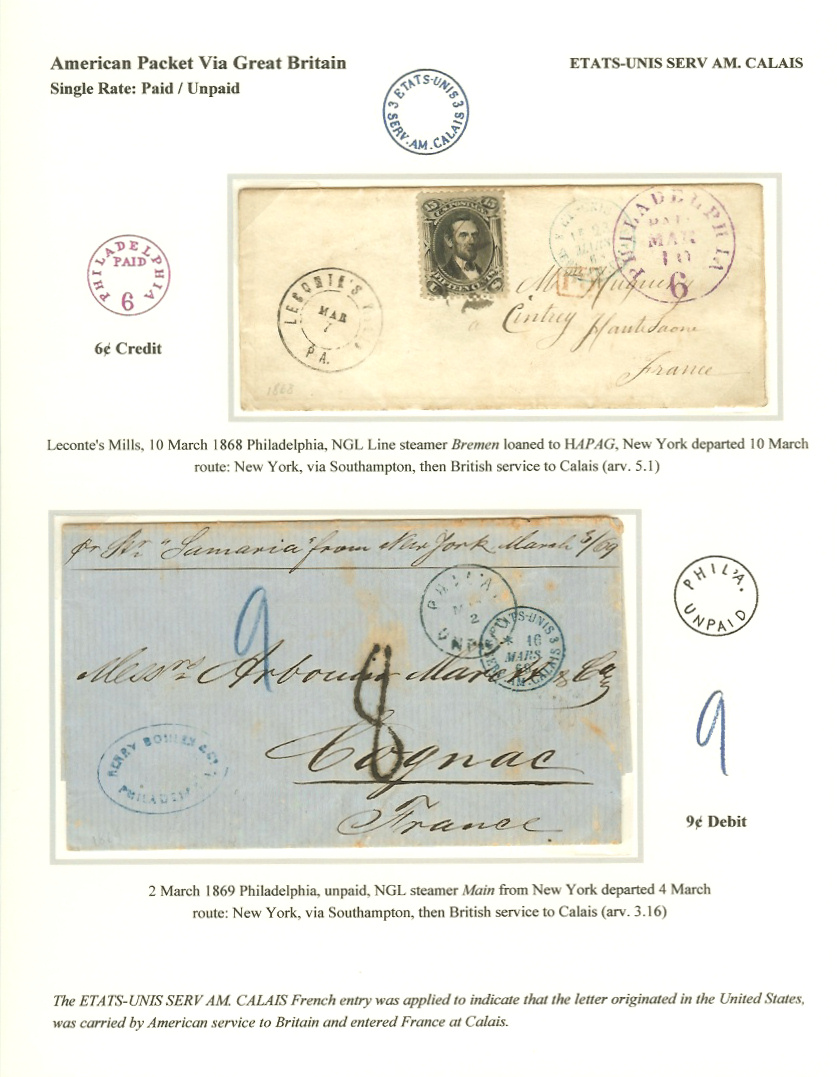 American Packet Via Great Britain
ETATS-UNIS SERV AM. CALAIS
Single Rate: Paid / Unpaid
3 ETATS-UNIS 3
SERV. AM. CALAIS
PHILADELPHIA
PAID
6
6¢ Credit
15 U.S. POSTAGE 15
LECONTE'S
MAR
7
PA.
PHILADELPHIA
PAID
MAR
10
6
Mr Hugues
a Cintrey Haute Saone
France
1868
Leconte's Mills, 10 March 1868 Philadelphia, NGL Line steamer Bremen loaned to HAPAG, New York departed 10 March
route: New York, via Southampton, then British service to Calais (arv. 5.1)
pr Str "Samaria" from New York March 3/69
PHIL'A.
2
UNPAID
ETATS-UNIS 3
16
MARS
69
SERV. AM. CALAIS
9
8
Messrs Arbouin Marett & Co
Cognac
France
HENRY BOHLEN & CO
PHILADELPHIA
PHIL'A.
UNPAID
9
9¢ Debit
2 March 1869 Philadelphia, unpaid, NGL steamer Main from New York departed 4 March
route: New York, via Southampton, then British service to Calais (arv. 3.16)
The ETATS-UNIS SERV AM. CALAIS French entry was applied to indicate that the letter originated in the United States,
was carried by American service to Britain and entered France at Calais.